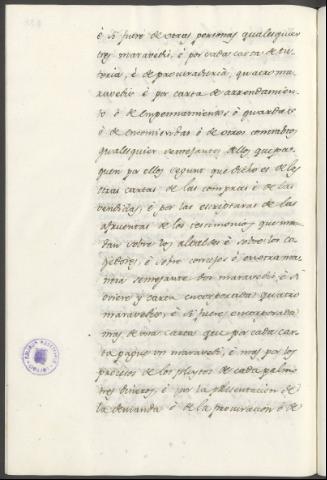 é si fuere de otras personas qualesquier
tres maravedis, é por cada carta de tu-
toria, é de procuradoria, quatro ma-
ravedis é por carta de arrendamien-
to ó de Empennamiento, é guarda é
ó de encomiendas ó de otros contrabtos
qualesquier semejantes dellos que pa-
guen por ellos segunt que dicho es de los
otras cartas de las compras é de las
vendidas, é por las escripturas de las
afruentas de los testimonios que man-
dan sobre los alcaldes é sobre los co-
gedores, é sobre consejos é en otra ma-
nera semejante dos maravedis, é si
oviere y carta encorporada quatro
maravedis, é si fuere encorporada
mas de una carta que por cada car-
ta pague un maravedi, é mas por los
procesos de los pleytos de cada palmo
tres dineros, é por la presentacion de
la demanda é de la procuracion é de